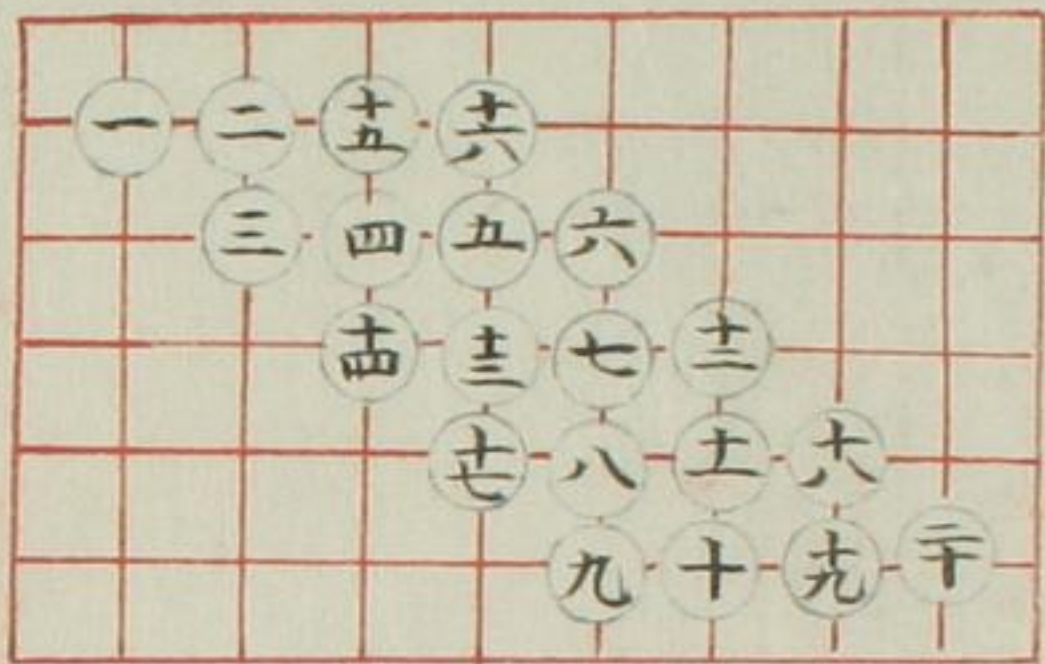 一 二 十五 十六
三 四 五 六
十四 十三 七 十二
十七 八 十一 十八
九 十 十九 二十